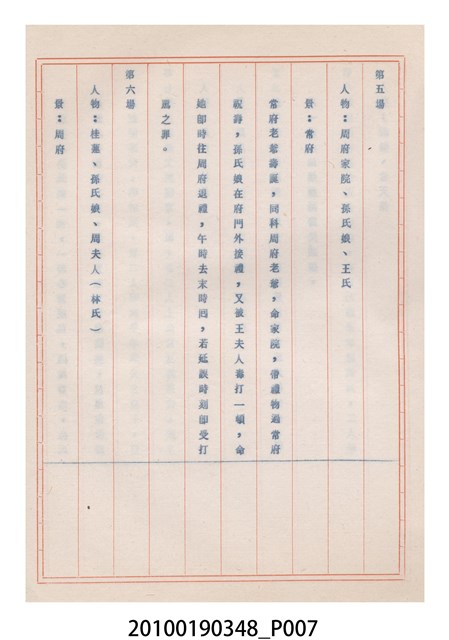 第五場
人物：周府家院、孫氏娘、王氏
景：常府
常府老爺壽誕，同科周府老爺，命家院，備禮物過常府
祝壽，孫氏娘在府門外接禮，又被王夫人毒打一頓，命
她即時往周府退禮，午時去末時回，若延誤時刻即受打
罵之罪。
第六場
人物：桂蓮、孫氏娘、周夫人（林氏）
景：周府
20100190348_P007